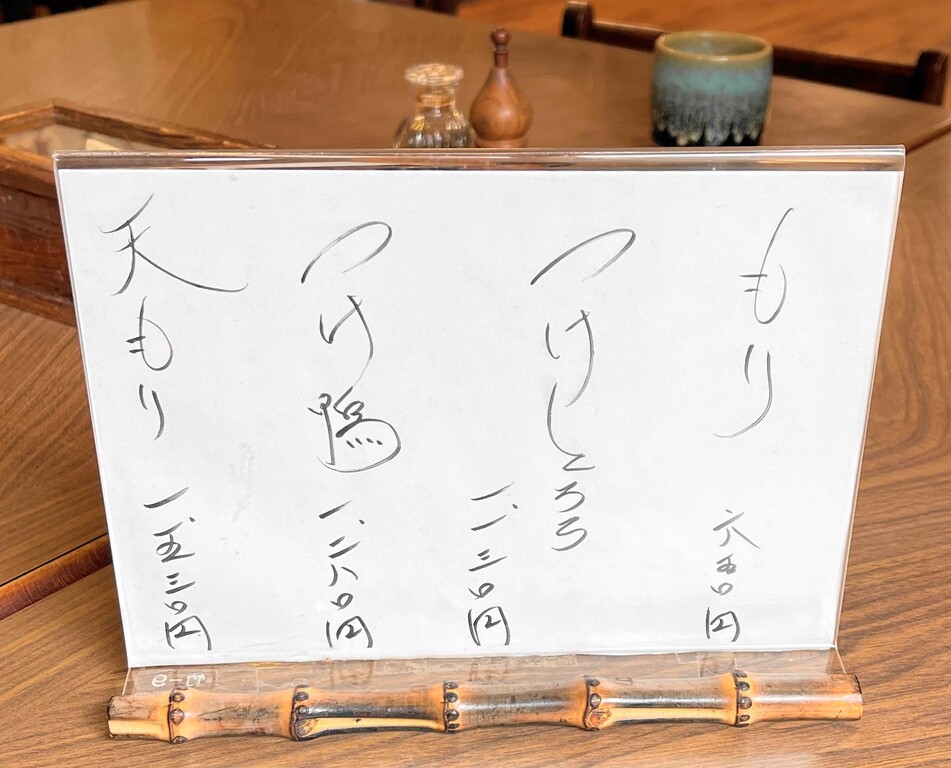 もり 六五〇円
つけとろろ 一、一三〇円
つけ鴨 一、二八〇円
天もり 一、五三〇円